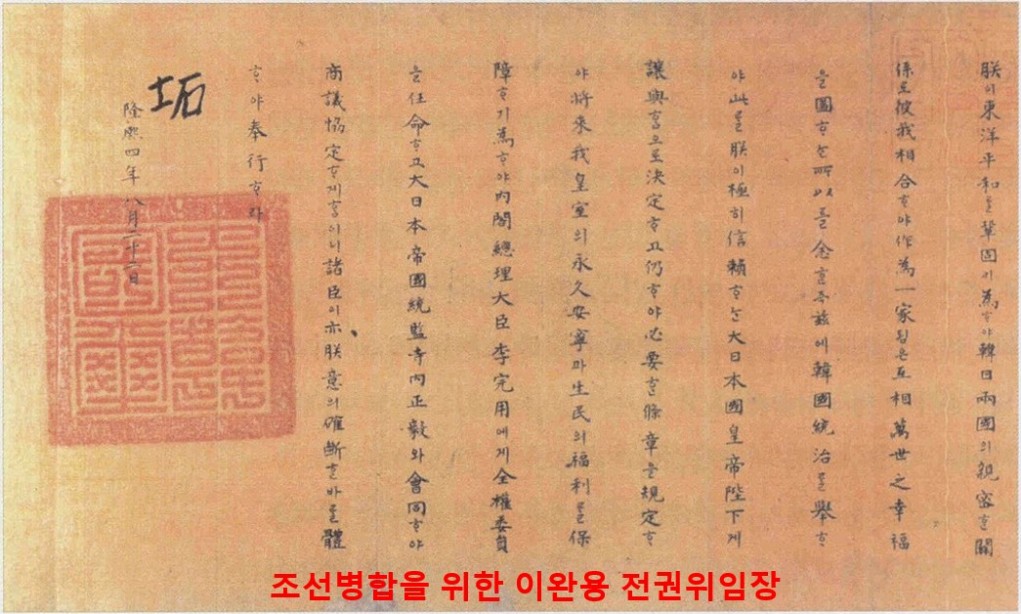 朕이東洋平和를鞏固이爲ᄒᆞ야韓日兩國의親密ᄒᆞᆫ關
係로彼我相合ᄒᆞ야作爲一家됨은互相萬世之幸福
을圖ᄒᆞᄂᆞᆫ所以를念ᄒᆞᆫ즉玆에韓國統治를擧ᄒᆞ
야此를朕이極히信賴ᄒᆞᄂᆞᆫ大日本國皇帝陛下게
讓與ᄒᆞᆷ으로決定ᄒᆞ고仍ᄒᆞ야必要ᄒᆞᆫ條章을規定ᄒᆞ
야將來我皇室의永久安寧과生民의福利를保
障ᄒᆞ기爲ᄒᆞ야內閣總理大臣李完用에게全權委員
을任命ᄒᆞ고大日本帝國統監寺內正毅와會同ᄒᆞ야
商議協定ᄒᆞ게ᄒᆞᆷ이니諸臣이亦朕意의確斷ᄒᆞᆫ바를體
ᄒᆞ야奉行ᄒᆞ라
坧
隆熙四年八月二十二日
조선병합을 위한 이완용 전권위임장